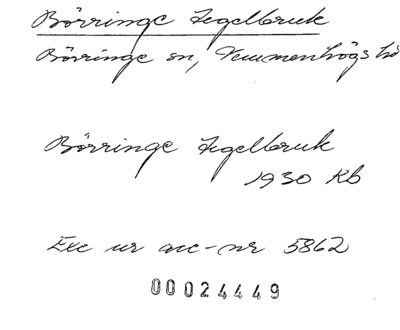 Börringe Tegelbruk
Börringe sn, Vemmenhögs hd
Börringe Tegelbruk
1930 Kb
Exc ur acc-nr 5862
00024449